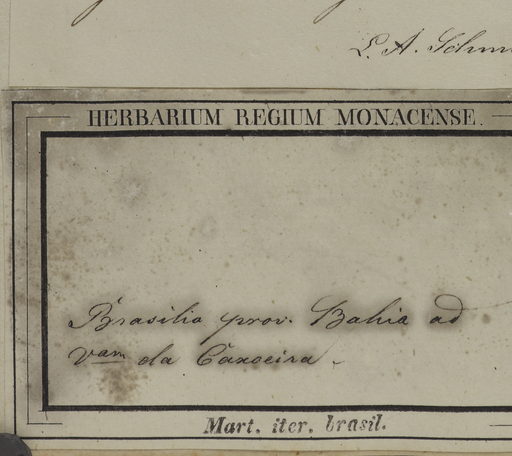 E. A. Schm
HERBARIUM REGIUM MONACENSE.
Brasilia prov. Bahia ad
Vam da Caxoeira.
Mart. iter. brasil.